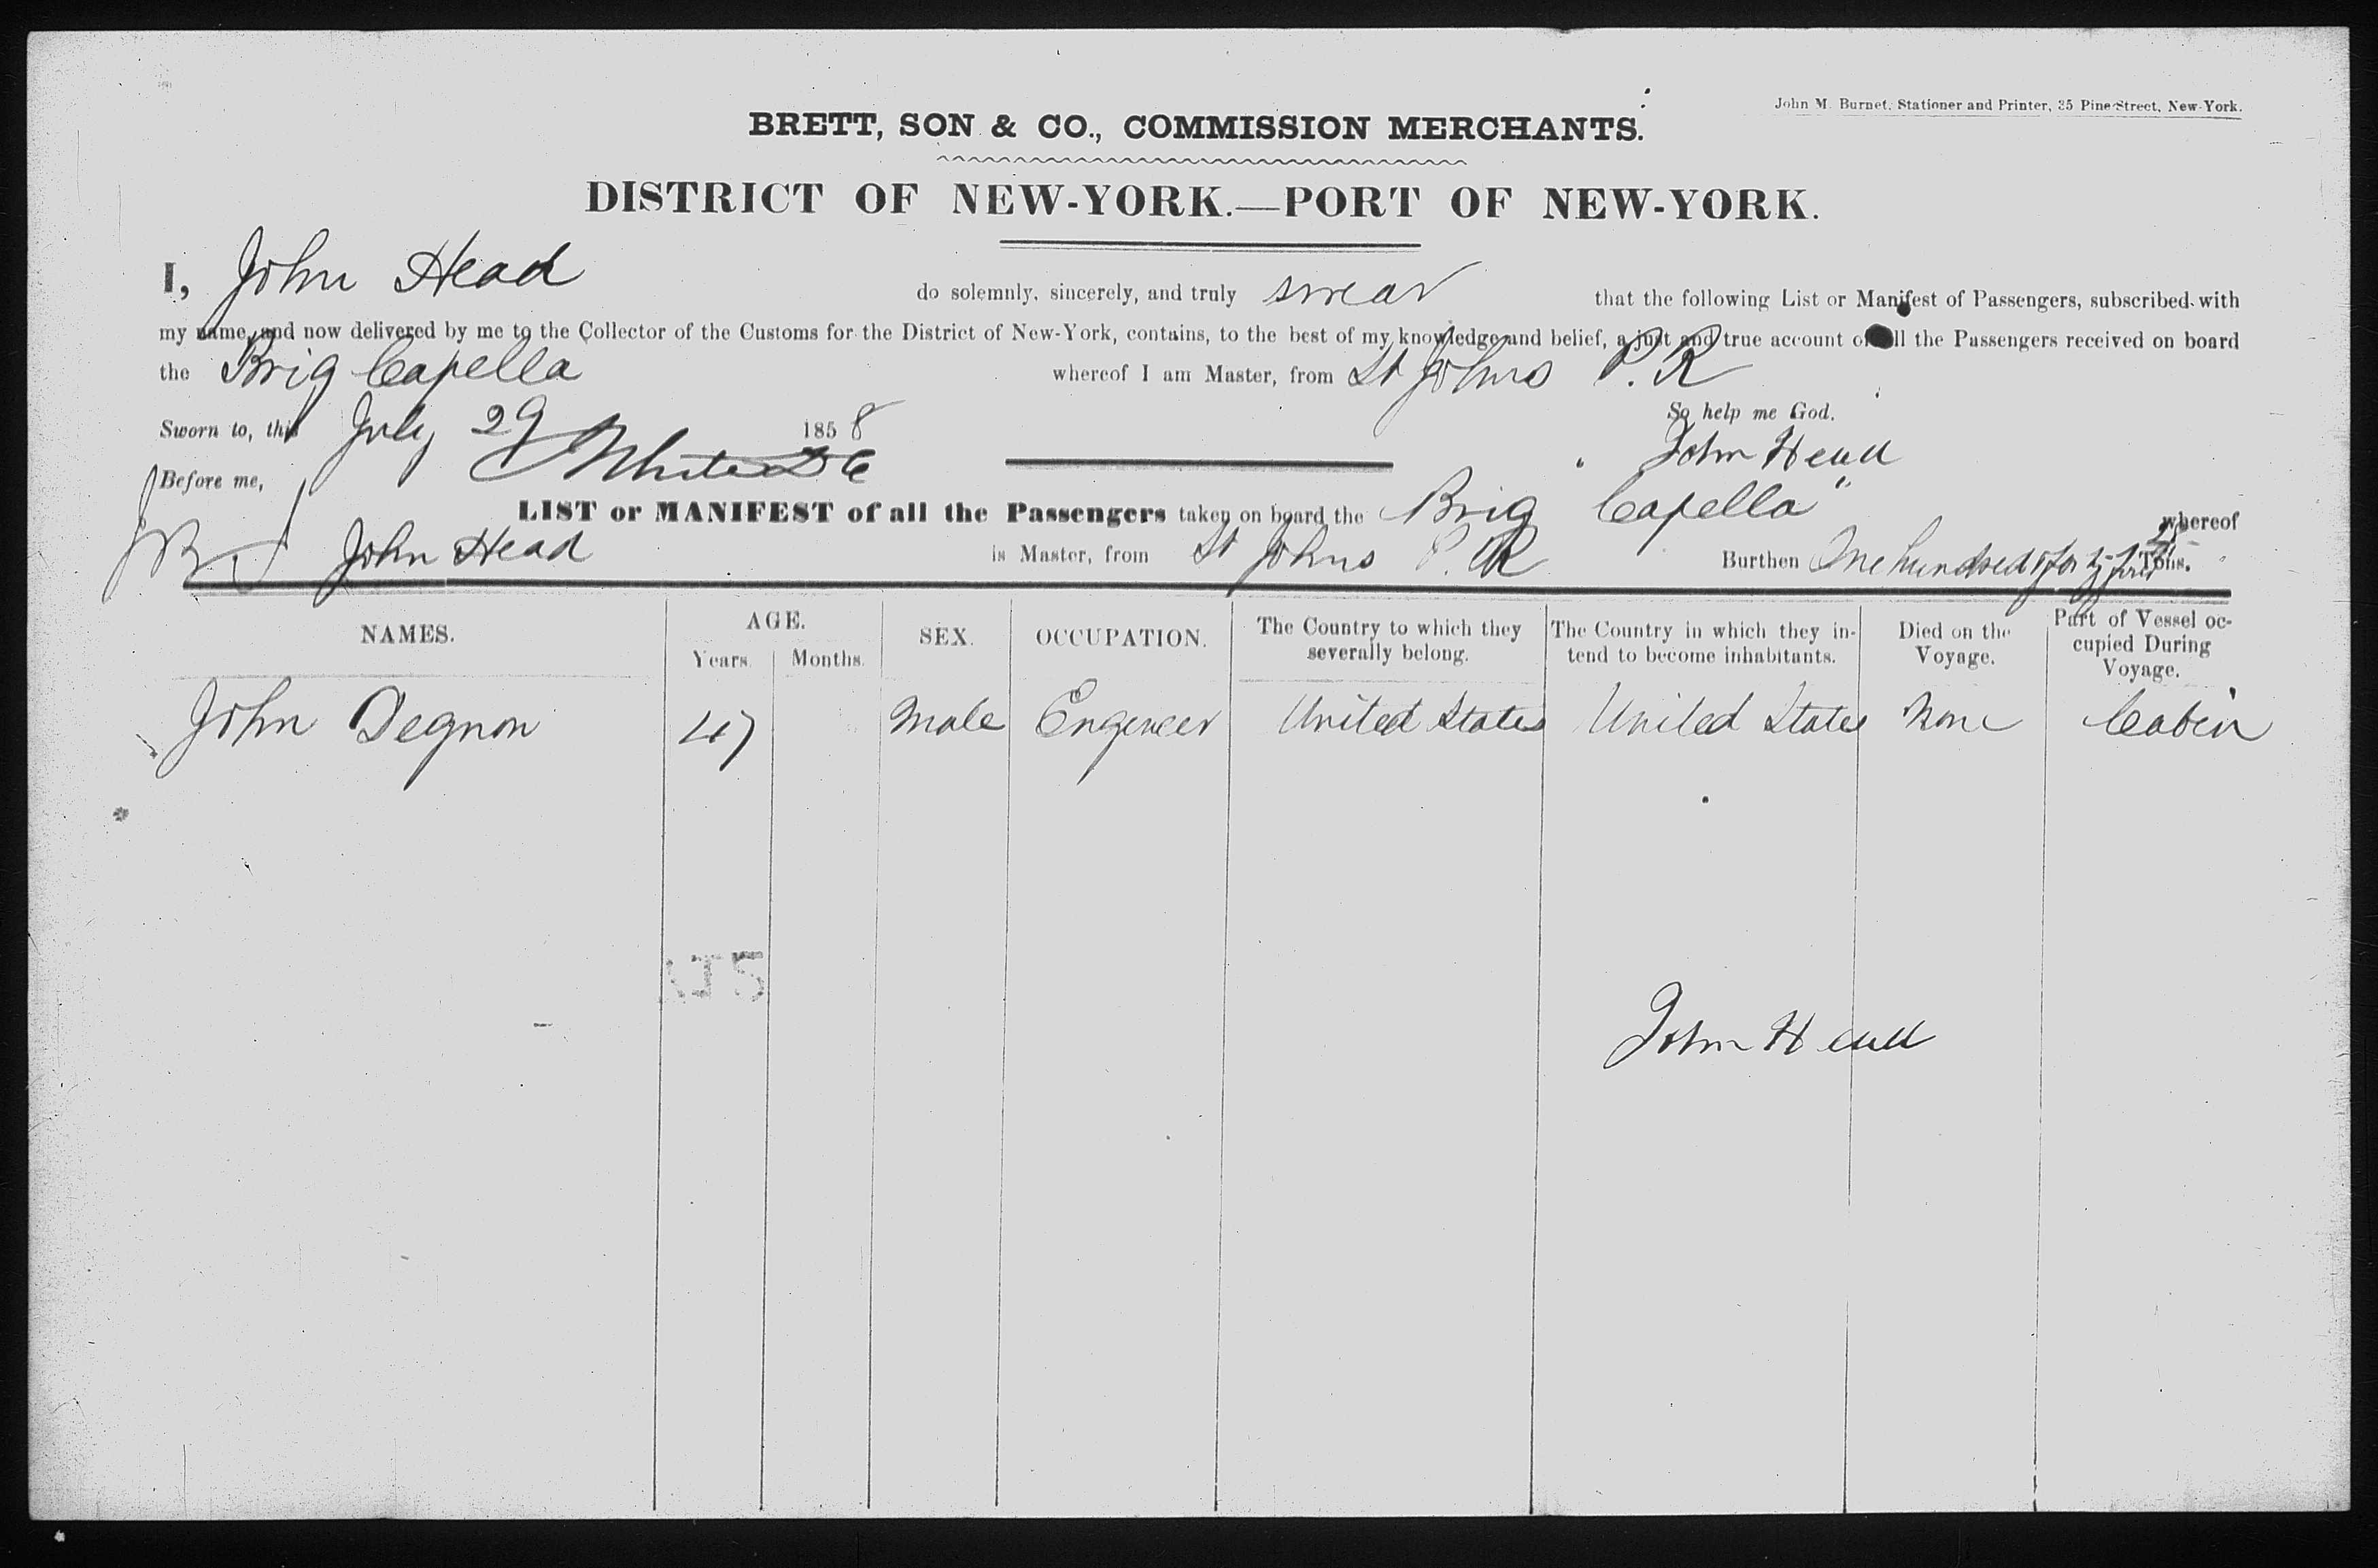 John M. Burnet, Stationer and Printer, 35 Pine Street, New-York.
BRETT, SON & CO., COMMISSION MERCHANTS.
DISTRICT OF NEW-YORK.—PORT OF NEW-YORK.
I, John Head do solemnly, sincerely, and truly swear that the following List or Manifest of Passengers, subscribed with
my name, and now delivered by me to the Collector of the Customs for the District of New-York, contains, to the best of my knowledge and belief, a just and true account of all the Passengers received on board
the Brig Capella whereof I am Master, from St Johns P. R
So help me God.
Sworn to, this July 29 1858 John Head
Before me, White DC
LIST or MANIFEST of all the Passengers taken on board the Brig "Capella" whereof
John Head is Master, from St Johns P. R Burthen One hundred Tons.
NAMES. AGE. SEX. OCCUPATION. The Country to which they severally belong. The Country in which they intend to become inhabitants. Died on the Voyage. Part of Vessel occupied During Voyage.
Years. Months.
John Degnon 47 Male Engeneer United States United States None Cabin
John Head